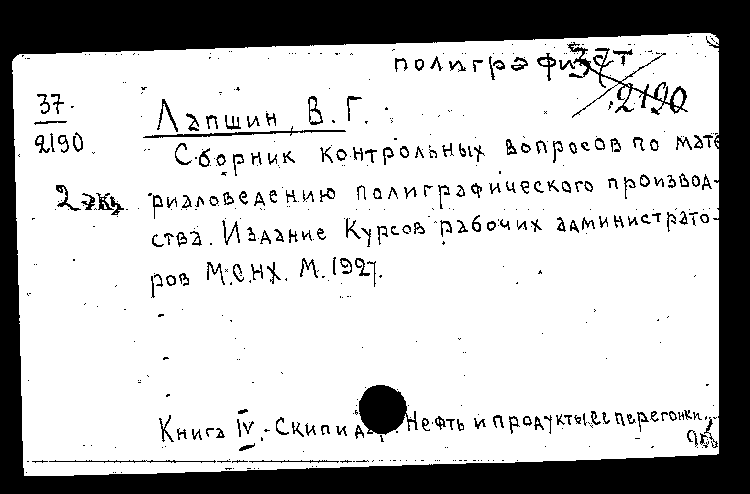 полиграфист
37.
2190
37
2190
Лапшин, В. Г.
Сборник контрольных вопросов по мате
2 экз
риаловедению полиграфического производ-
ства. Издание Курсов рабочих администрато-
ров М.С.НХ. М. 1927.
Книга IV.- Скипидар. Нефть и продукты ее перегонки,